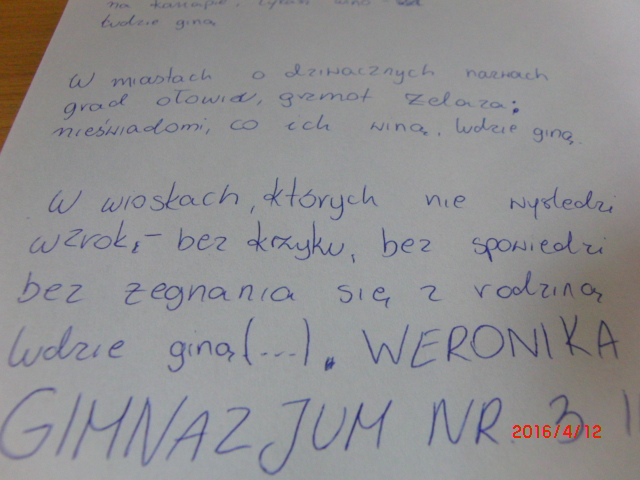 na kanapie, 
ludzie giną
W miastach o dziwacznych nazwach
grad ołowiu, grzmot żelaza:
nieświadomi, co ich winą, ludzie giną.
W wioskach, których nie wyśledzi
wzrok, - bez krzyku, bez spowiedzi
bez żegnania się z rodziną
ludzie giną (...). WERONIKA
GIMNAZJUM NR. 3
2016/4/12